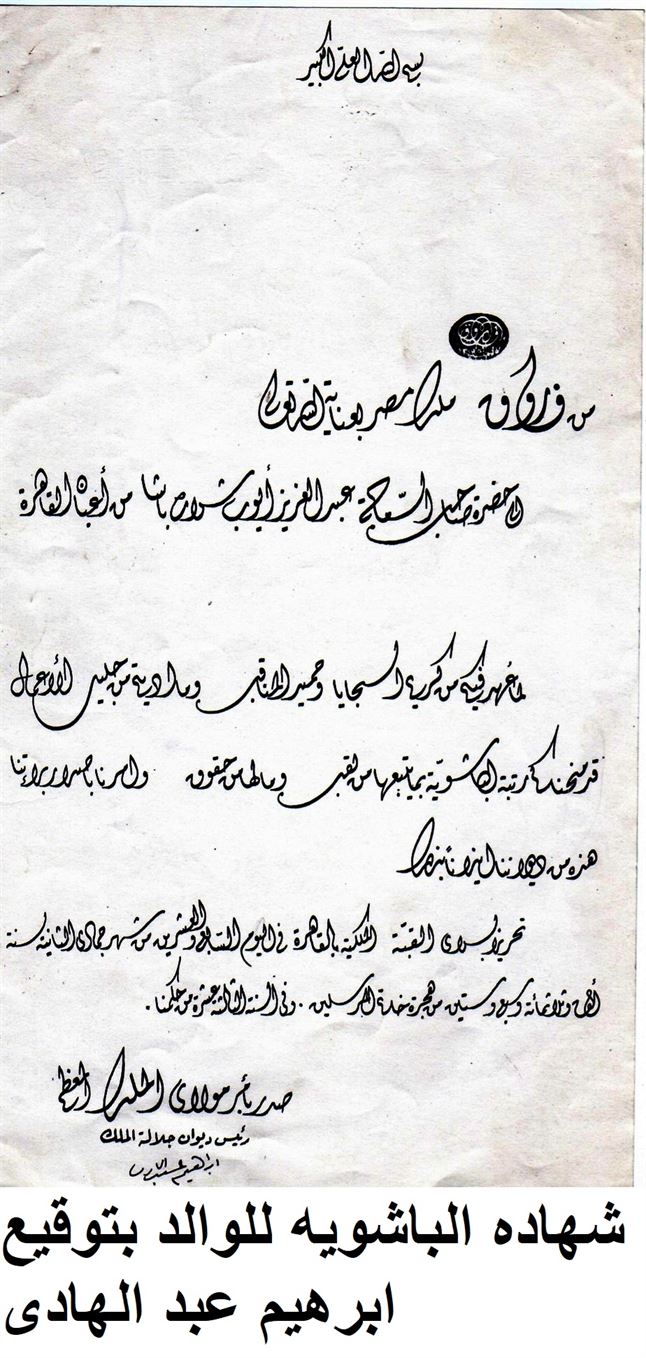 بسم الله العلى الكبير
فاروق
من فاروق ملك مصر بعناية الله تعالى
الى حضرة صاحب السعادة عبد العزيز أيوب شرارة باشا من أعيان القاهرة
لما عهد فيكم من كريم السجايا وحميد المناقب وما اديتم من جليل الأعمال
قد منحناكم رتبة الباشوية بما يتبعها من لقب وما لها من حقوق وامرنا باصدار براءتنا
هذه من ديواننا ايذانا بذلك
تحريرا بسراى القبة الملكية بالقاهرة فى اليوم السابع والعشرين من شهر جمادى الثانية لسنة
ألف وثلاثمائة وسبع وستين من هجرة خاتم المرسلين . وفى السنة الثالثة عشرة من حكمنا .
صدر بأمر مولاى الملك المعظم
رئيس ديوان جلالة الملك
ابراهيم عبد الهادى
شهاده الباشويه للوالد بتوقيع
ابرهيم عبد الهادى